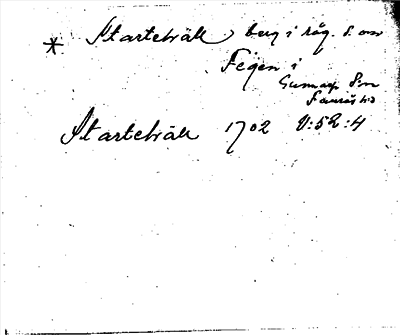 * Starteliäll berg i råg. S. om
Fegen i
Gunnarp S:n
Faurås hd
Starteliäll 1702 V:52:4